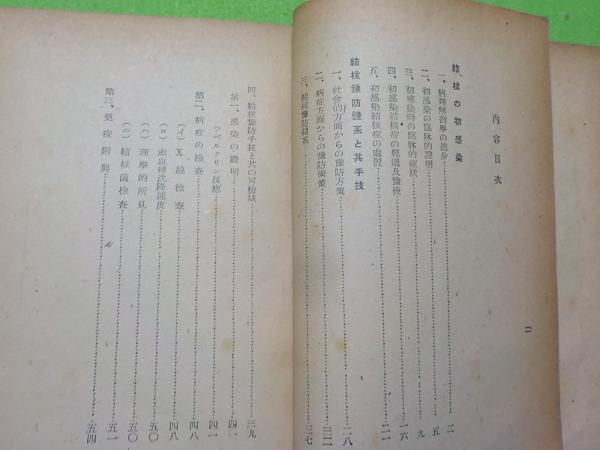 內容目次
結核の初感染
一、病理解剖學の進步…………二
二、初感染の臨牀的證明…………五
三、初感染時の臨牀的症狀…………九
四、初感染結核症の經過及豫後…………一六
五、初感染結核症の處置…………二二
結核豫防體系と其手技
一、社會的方面からの豫防方策…………二八
二、病症方面からの豫防術策…………三二
三、結核豫防體系…………三七
四、結核豫防手技と其の可檢域…………三九
第一、感染の證明…………四一
ツベルクリン反應…………四一
第二、病症の檢查…………四八
(イ) X線檢查…………四八
(ロ) 赤血球沈降速度…………五〇
(ハ) 理學的所見…………五〇
(ニ) 結核菌檢查…………五一
第三、免疫附與…………五四